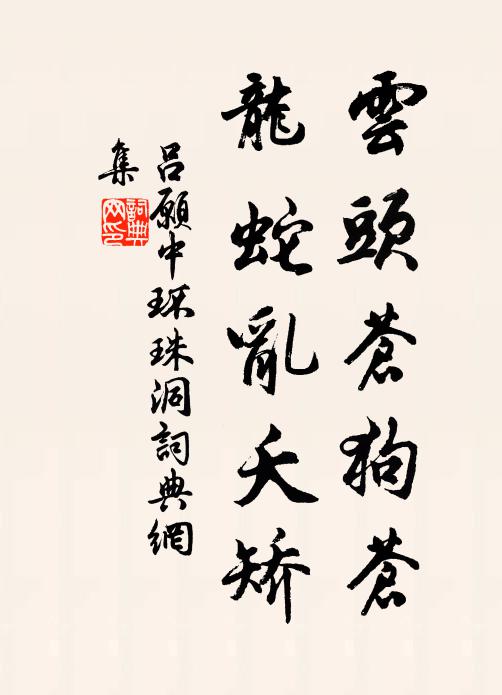 雲頭蒼狗蒼
龍蛇亂夭矯
吕願中环珠洞詞典網
集
詞典
网印